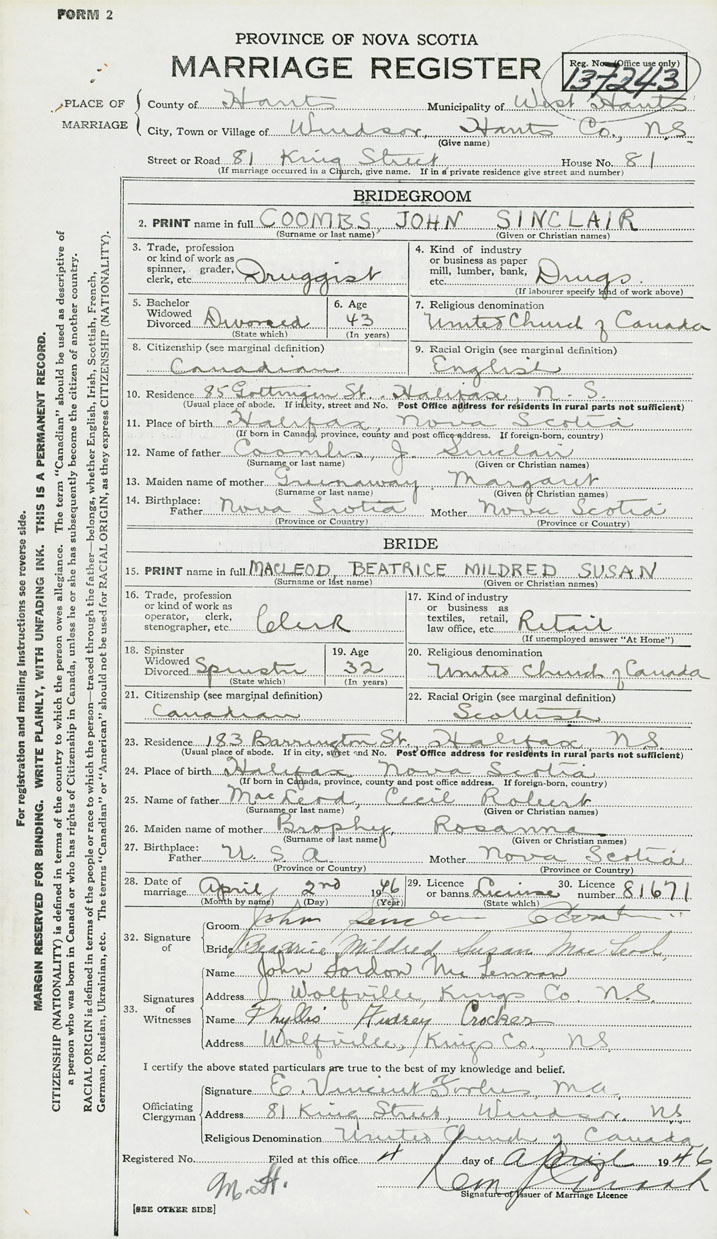 FORM 2
PROVINCE OF NOVA SCOTIA
MARRIAGE REGISTER
Reg. No. (Office use only)
137243
PLACE OF MARRIAGE
County of Hants Municipality of West Hants
City, Town or Village of Windsor, Hants Co., N.S.
(Give name)
Street or Road 81 King Street House No. 81
(If marriage occurred in a Church, give name. If in a private residence give street and number)
BRIDEGROOM
2. PRINT name in full COOMBS, JOHN SINCLAIR
(Surname or last name) (Given or Christian names)
3. Trade, profession or kind of work as spinner, grader, clerk, etc. Druggist
4. Kind of industry or business as paper mill, lumber, bank, etc. Drugs
(If labourer specify kind of work above)
5. Bachelor Widowed Divorced Divorced
(State which)
6. Age 43
(In years)
7. Religious denomination
United Church of Canada
8. Citizenship (see marginal definition)
Canadian
9. Racial Origin (see marginal definition)
English
10. Residence 85 Gottingen St. Halifax, N.S.
(Usual place of abode. If in city, street and No. Post Office address for residents in rural parts not sufficient)
11. Place of birth Halifax, Nova Scotia
(If born in Canada, province, county and post office address. If foreign-born, country)
12. Name of father Coombs, J. Sinclair
(Surname or last name) (Given or Christian names)
13. Maiden name of mother Greenaway Margaret
(Surname or last name) (Given or Christian names)
14. Birthplace: Father Nova Scotia Mother Nova Scotia
(Province or Country) (Province or Country)
BRIDE
15. PRINT name in full MACLEOD, BEATRICE MILDRED SUSAN
(Surname or last name) (Given or Christian names)
16. Trade, profession or kind of work as operator, clerk, stenographer, etc. Clerk
17. Kind of industry or business as textiles, retail, law office, etc. Retail
(If unemployed answer "At Home")
18. Spinster Widowed Divorced Spinster
(State which)
19. Age 32
(In years)
20. Religious denomination
United Church of Canada
21. Citizenship (see marginal definition)
Canadian
22. Racial Origin (see marginal definition)
Scottish
23. Residence 183 Barrington St., Halifax N.S.
(Usual place of abode. If in city, street and No. Post Office address for residents in rural parts not sufficient)
24. Place of birth Halifax Nova Scotia
(If born in Canada, province, county and post office address. If foreign-born, country)
25. Name of father MacLeod, Cecil Robert
(Surname or last name) (Given or Christian names)
26. Maiden name of mother Brophy, Rosanna
(Surname or last name) (Given or Christian names)
27. Birthplace: Father U.S.A Mother Nova Scotia
(Province or Country) (Province or Country)
28. Date of marriage April 2nd 1946
(Month by name) (Day) (Year)
29. Licence or banns License
(State which)
30. Licence number 81671
32. Signature of
Groom John
Bride Beatrice Mildred Susan MacLeod
33. Signatures of Witnesses
Name John Gordon McLennan
Address Wolfville, Kings Co. N.S.
Name Phyllis Audrey Crocker
Address Wolfville, Kings Co., N.S.
I certify the above stated particulars are true to the best of my knowledge and belief.
Officiating Clergyman
Signature E. Vincent Forbes, M.A.
Address 81 King Street, Windsor, NS
Religious Denomination United Church of Canada
Registered No. Filed at this office 4 day of April 1946
M.H.
Signature of Issuer of Marriage Licence
[SEE OTHER SIDE]
For registration and mailing instructions see reverse side.
MARGIN RESERVED FOR BINDING. WRITE PLAINLY, WITH UNFADING INK. THIS IS A PERMANENT RECORD.
CITIZENSHIP (NATIONALITY) is defined in terms of the country to which the person owes allegiance. The term "Canadian" should be used as descriptive of
a person who was born in Canada or who has rights of Citizenship in Canada, unless he or she has subsequently become the citizen of another country.
RACIAL ORIGIN is defined in terms of the people or race to which the person—traced through the father—belongs, whether English, Irish, Scottish, French,
German, Russian, Ukrainian, etc. The terms "Canadian" or "American" should not be used for RACIAL ORIGIN, as they express CITIZENSHIP (NATIONALITY).